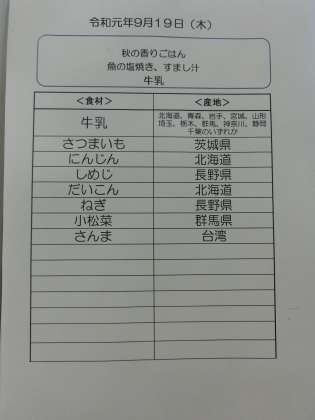 令和元年9月19日（木）
秋の香りごはん
魚の塩焼き、すまし汁
牛乳
＜食材＞ ＜産地＞
牛乳 北海道、青森、岩手、宮城、山形
埼玉、栃木、群馬、神奈川、静岡
千葉のいずれか
さつまいも 茨城県
にんじん 北海道
しめじ 長野県
だいこん 北海道
ねぎ 長野県
小松菜 群馬県
さんま 台湾